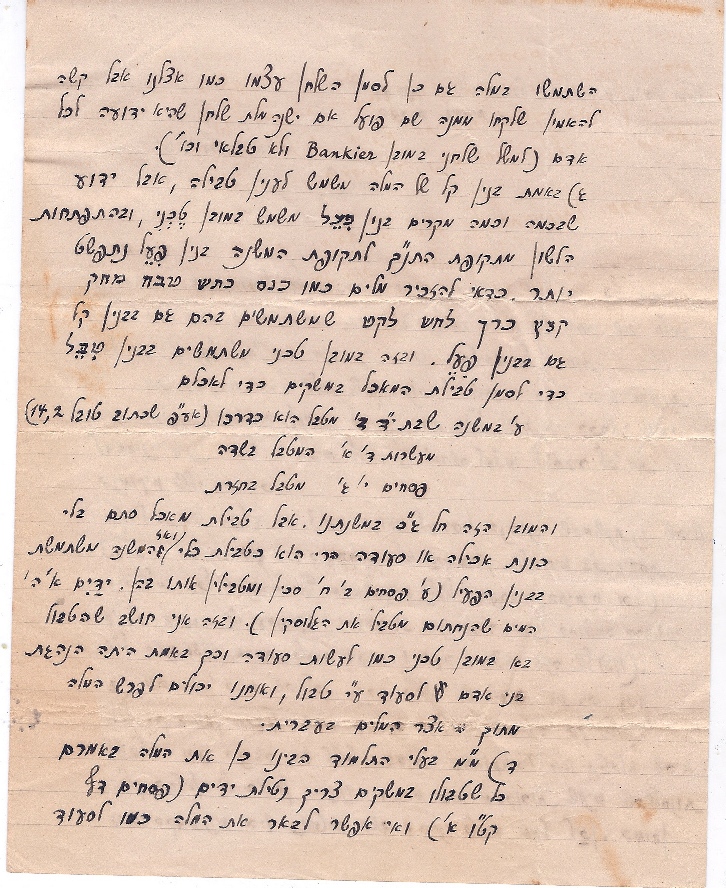 השתמשו במלה גם כן לסמן השלחן עצמו כמו אצלנו אבל קשה
להאמין שלקחו ממנה שם פועל אם ישנה מלת שלחן שהיא ידועה לכל
אדם (למשל שלחני במובן Bankier ולא טבלאי וכו').
ג) באמת בנין קל של המלה משמש לענין טבילה, אבל ידוע
שבכמה וכמה מקרים בנין פִּעֵל משמש במובן טֶכְנִי, ובהתפתחות
הלשון מתקופת התנ"ך לתקופת המשנה בנין פִּעֵל נתפשט
יותר. כדאי להזכיר מלים כמו כנס כתש טבח מחק
קצץ כרך לחש לקט שמשתמשים בהם גם בבנין קל
גם בבנין פִּעֵל. ובזה במובן טכני משתמשים בבנין טִבֵּל
כדי לסמן טבילת המאכל במשקים כדי לאכלם
ע' במשנה שבת י"ד ב' מטבל הוא כדרכו (אע"פ שכתוב טובל 14,2)
מעשרות ד' א' המטבל בשדה
פסחים י' ג' מטבל בחזרת
והמובן הזה חל ג"כ במשנתנו. אבל טבילת מאכל סתם בלי
כונת אכילה או סעודה הרי הוא כטבילת כלי ואז המשנה משתמשת
בבנין הפעיל (ע' פסחים ב' ח' סכין ומטבילין אותו בהן. יָדַיִם א' ה'
המים שהנחתום מטביל את הגלוסקין). ובזה אני חושב שהטבול
בא במובן טכני כמו לעשות סעודה וכך באמת היתה הנהגת
בני אדם לסעוד ע"י טבול, ואנחנו יכולים לפרש המלה
מתוך אצר המלים בעברית.
ד) מ"מ בעלי התלמוד הבינו כן את המלה באמרם
כל שטבולו במשקים צריך נטילת ידים (פסחים דף
קט"ו א') ואי אפשר לבאר את המלה כמו לסעוד